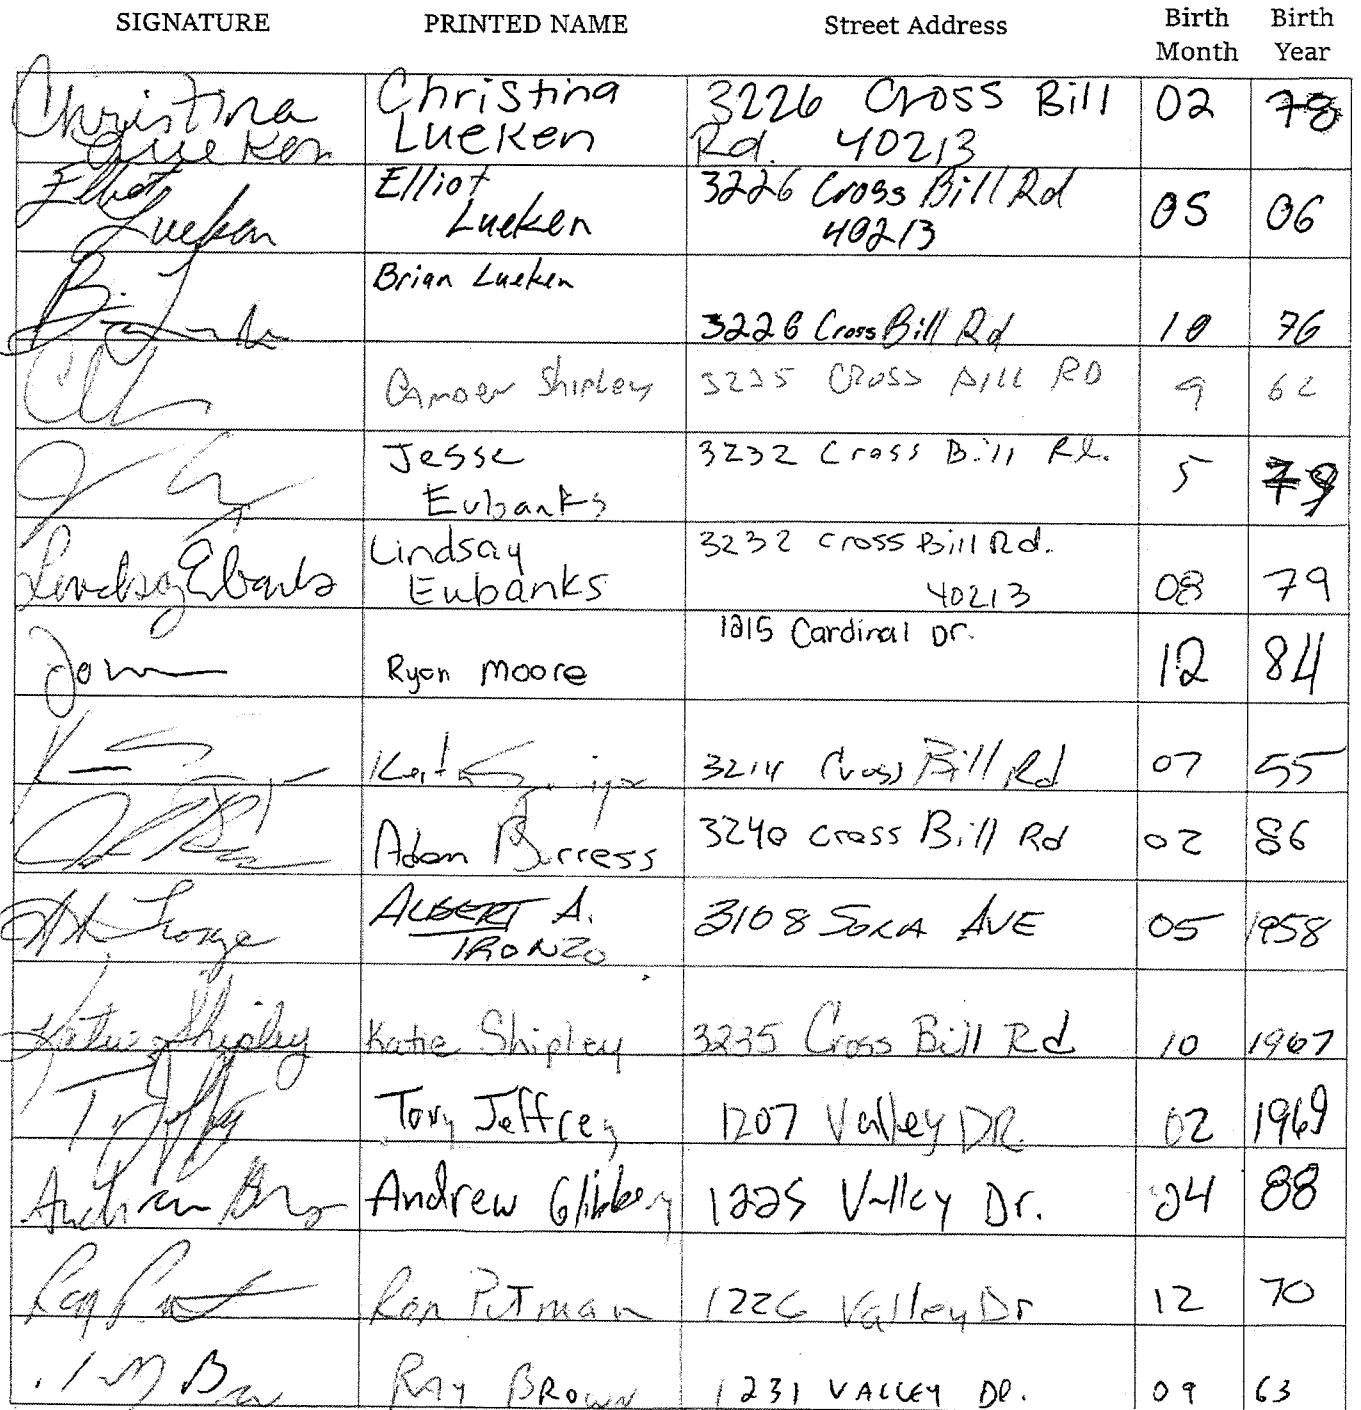 SIGNATURE PRINTED NAME Street Address Birth Month Birth Year
Christina Lueken Christina Lueken 3226 Cross Bill Rd. 40213 02 78
Elliot Lueken Elliot Lueken 3226 Cross Bill Rd 40213 05 06
Brian Lueken 3226 Cross Bill Rd 10 76
Shipley 3235 Cross Bill RD 9 62
Jesse Eubanks 3232 Cross Bill Rd. 5 79
Lindsay Eubanks Lindsay Eubanks 3232 Cross Bill Rd. 40213 08 79
Ryan Moore 1215 Cardinal Dr. 12 84
3214 Cross Bill Rd 07 55
Adam Burress 3240 Cross Bill Rd 02 86
ALBERT A. IRONZO 3108 SORA AVE 05 1958
Katie Shipley Katie Shipley 3235 Cross Bill Rd 10 1967
Tory Jeffrey 1207 Valley DR. 02 1969
Andrew 1225 Valley Dr. 04 88
Ron Putman 1226 Valley Dr 12 70
RAY BROWN 1231 VALLEY DR. 09 63